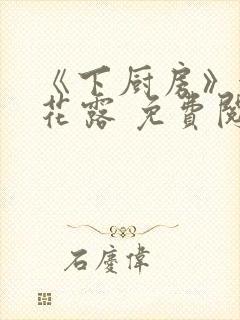 《下厨房》
花露 免費閱
石慶偉